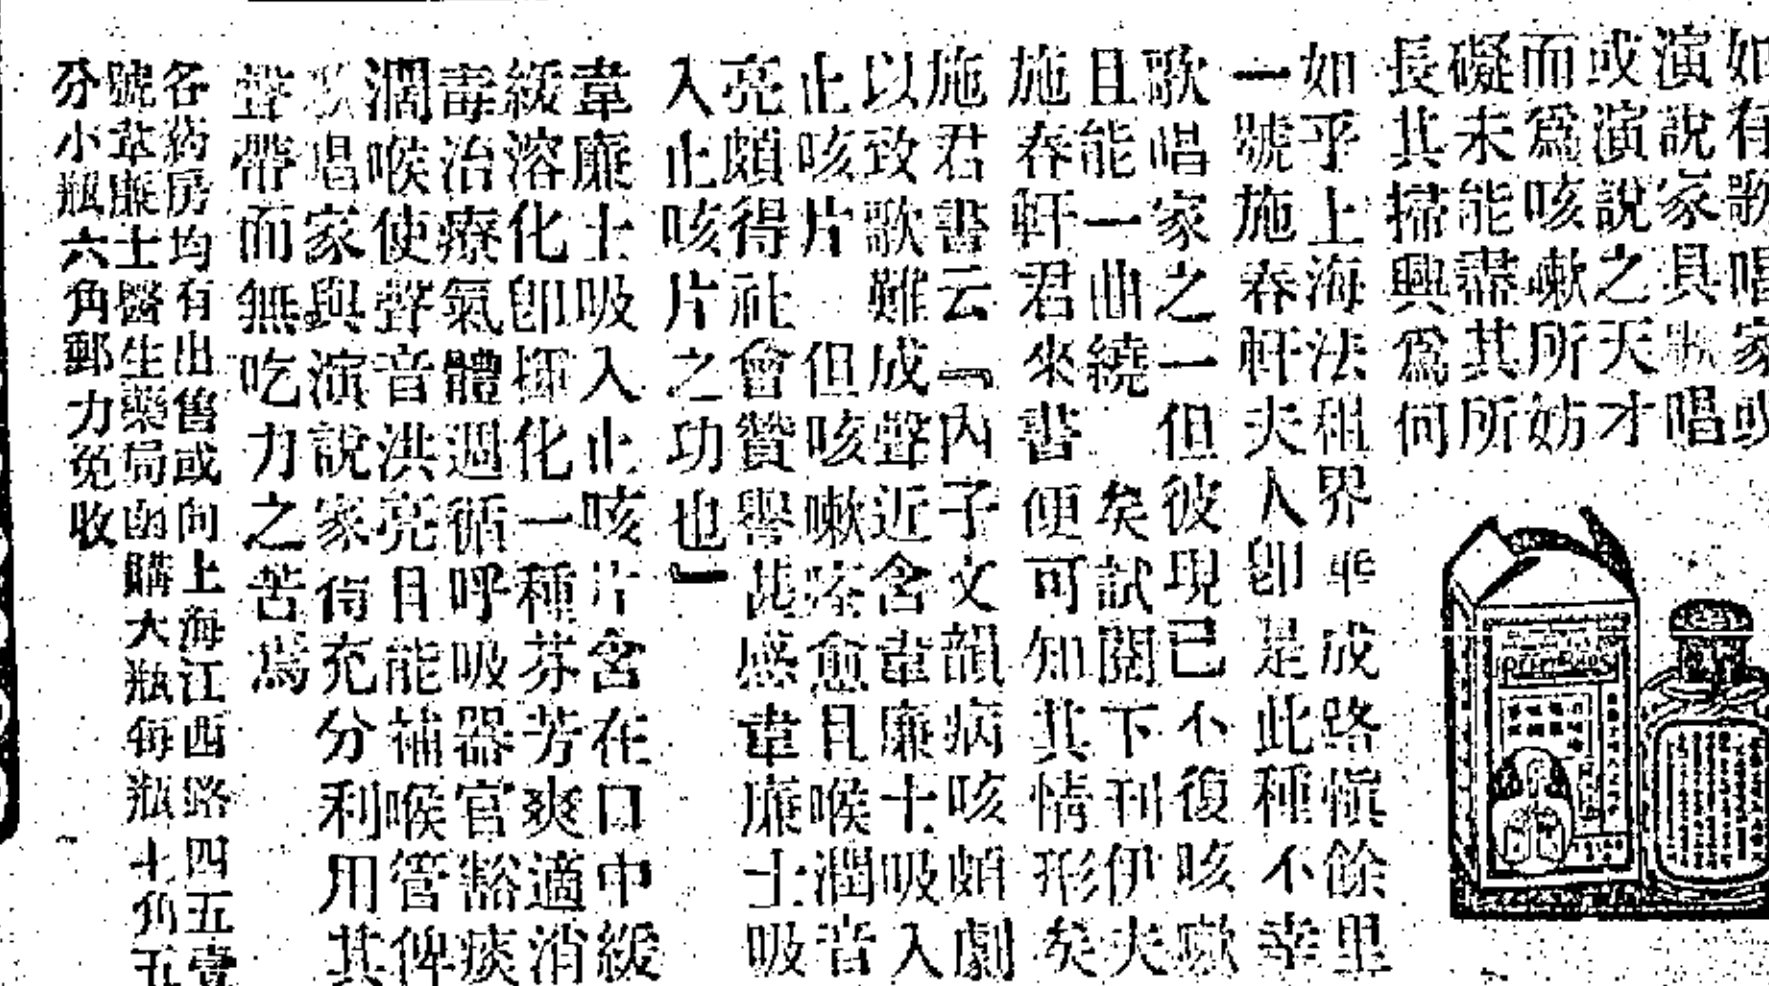 如有歌唱家或
演說家具歌唱
或演說之天才
而爲咳嗽所妨
礙未能盡其所
長其掃興爲何
如乎上海法租界 成路愼餘里
一號施春軒夫人卽是此種不幸
歌唱家之一但彼現已不復咳嗽
且能一曲繞 矣試閱下刊伊夫
施春軒君來書便可知其情形矣
施君書云『內子文韻病咳頗劇
以致歌難成聲近含韋廉士吸入
止咳片 但咳嗽 愈且喉潤音
亮頗得社會贊譽甚感韋廉士吸
入止咳片之功也』
韋廉士吸入止咳片含在口中緩
緩溶化卽揮化一種芬芳爽適消
毒治療氣體週循呼吸器官豁痰
潤喉使聲音洪亮且能補喉管俾
歌唱家與演說家得充分利用其
聲帶而無吃力之苦焉
各药房均有出售或向上海江西路四五壹
號韋廉士醫生藥局函購大瓶每瓶十角五
分小瓶六角郵力免收